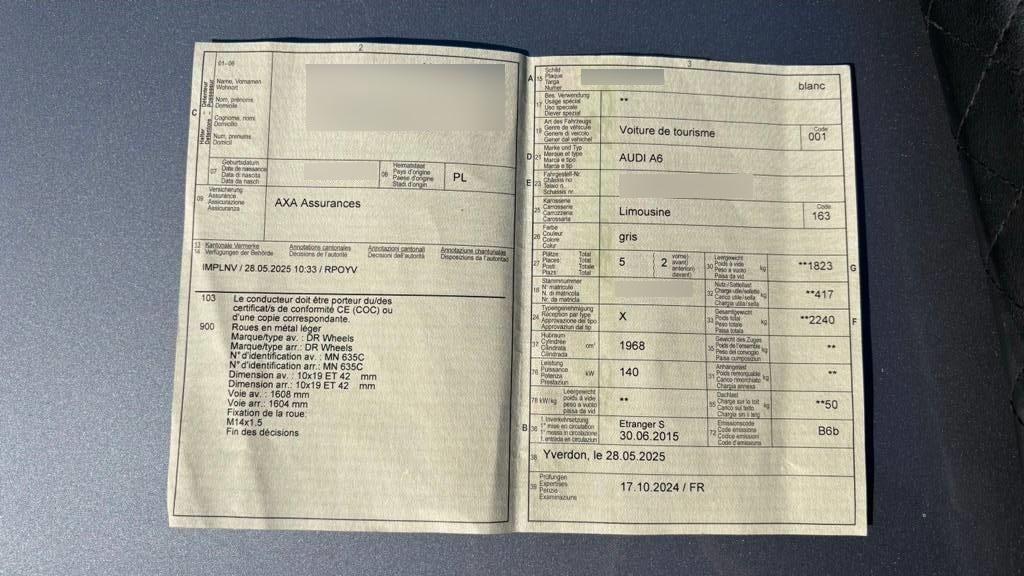 2
01–06
Name, Vornamen
Wohnort
Nom, prénoms
Domicile
Cognome, nomi
Domicilio
Num, prenums
Domicil
C
07
Geburtsdatum
Date de naissance
Data di nascita
Data da nasch
08
Heimatstaat
Pays d'origine
Paese d'origine
Stadi d'origin
PL
09
Versicherung
Assurance
Assicurazione
Assicuranza
AXA Assurances
13
14
Kantonale Vermerke
Verfügungen der Behörde
Annotations cantonales
Décisions de l'autorité
Annotazioni cantonali
Decisioni dell'autorità
Annotaziuns chantunalas
Disposiziuns da l'autoritad
IMPLNV / 28.05.2025 10:33 / RPOYV
103 Le conducteur doit être porteur du/des
certificat/s de conformité CE (COC) ou
d'une copie correspondante.
900 Roues en métal léger
Marque/type av. : DR Wheels
Marque/type arr.: DR Wheels
N° d'identification av. : MN 635C
N° d'identification arr.: MN 635C
Dimension av. : 10x19 ET 42 mm
Dimension arr.: 10x19 ET 42 mm
Voie av.: 1608 mm
Voie arr.: 1604 mm
Fixation de la roue:
M14x1.5
Fin des décisions
3
A 15
Schild
Plaque
Targa
Numer
blanc
17
Bes. Verwendung
Usage spécial
Uso speciale
Diever spezial
**
19
Art des Fahrzeugs
Genre de véhicule
Genere di veicolo
Gener dal vehichel
Voiture de tourisme
Code
001
D 21
Marke und Typ
Marque et type
Marca e tipo
Marca e tip
AUDI A6
E 23
Fahrgestell-Nr.
Châssis no
Telaio n.
Schassis nr.
25
Karosserie
Carrosserie
Carrozzeria
Carossaria
Limousine
Code
163
26
Farbe
Couleur
Colore
Colur
gris
27
Plätze Total
Places: Total
Posti: Totale
Plazs: Total
5
2
vorne)
avant)
anteriori)
davant)
30
Leergewicht
Poids à vide
Peso a vuoto
Paisa da vid
kg
**1823
G
18
Stammnummer
N° matricule
N. di matricola
Nr. da matricla
32
Nutz-/Sattellast
Charge utile/sellette
Carico utile/sella
Chargia utila/sella
kg
**417
24
Typengenehmigung
Réception par type
Approvazione del tipo
Approvaziun dal tip
X
33
Gesamtgewicht
Poids total
Peso totale
Paisa totala
kg
**2240
F
37
Hubraum
Cylindrée
Cilindrata
Cilindrada
cm³
1968
35
Gewicht des Zuges
Poids de l'ensemble
Peso del convoglio
Paisa cumposiziun
kg
**
76
Leistung
Puissance
Potenza
Prestaziun
kW
140
31
Anhängelast
Poids remorquable
Carico rimorchiato
Chargia annexa
kg
**
78 kW/kg
Leergewicht
poids à vide
peso a vuoto
paisa da vid
**
55
Dachlast
Charge sur le toit
Carico sul tetto
Chargia sin il tetg
kg
**50
B 36
1. Inverkehrsetzung
1re mise en circulation
1a messa in circolazione
1. entrada en circulaziun
Etranger S
30.06.2015
72
Emissionscode
Code émissions
Codice emissioni
Code d'emissiuns
B6b
38
Yverdon, le 28.05.2025
39
Prüfungen
Expertises
Perizie
Examinaziuns
17.10.2024 / FR